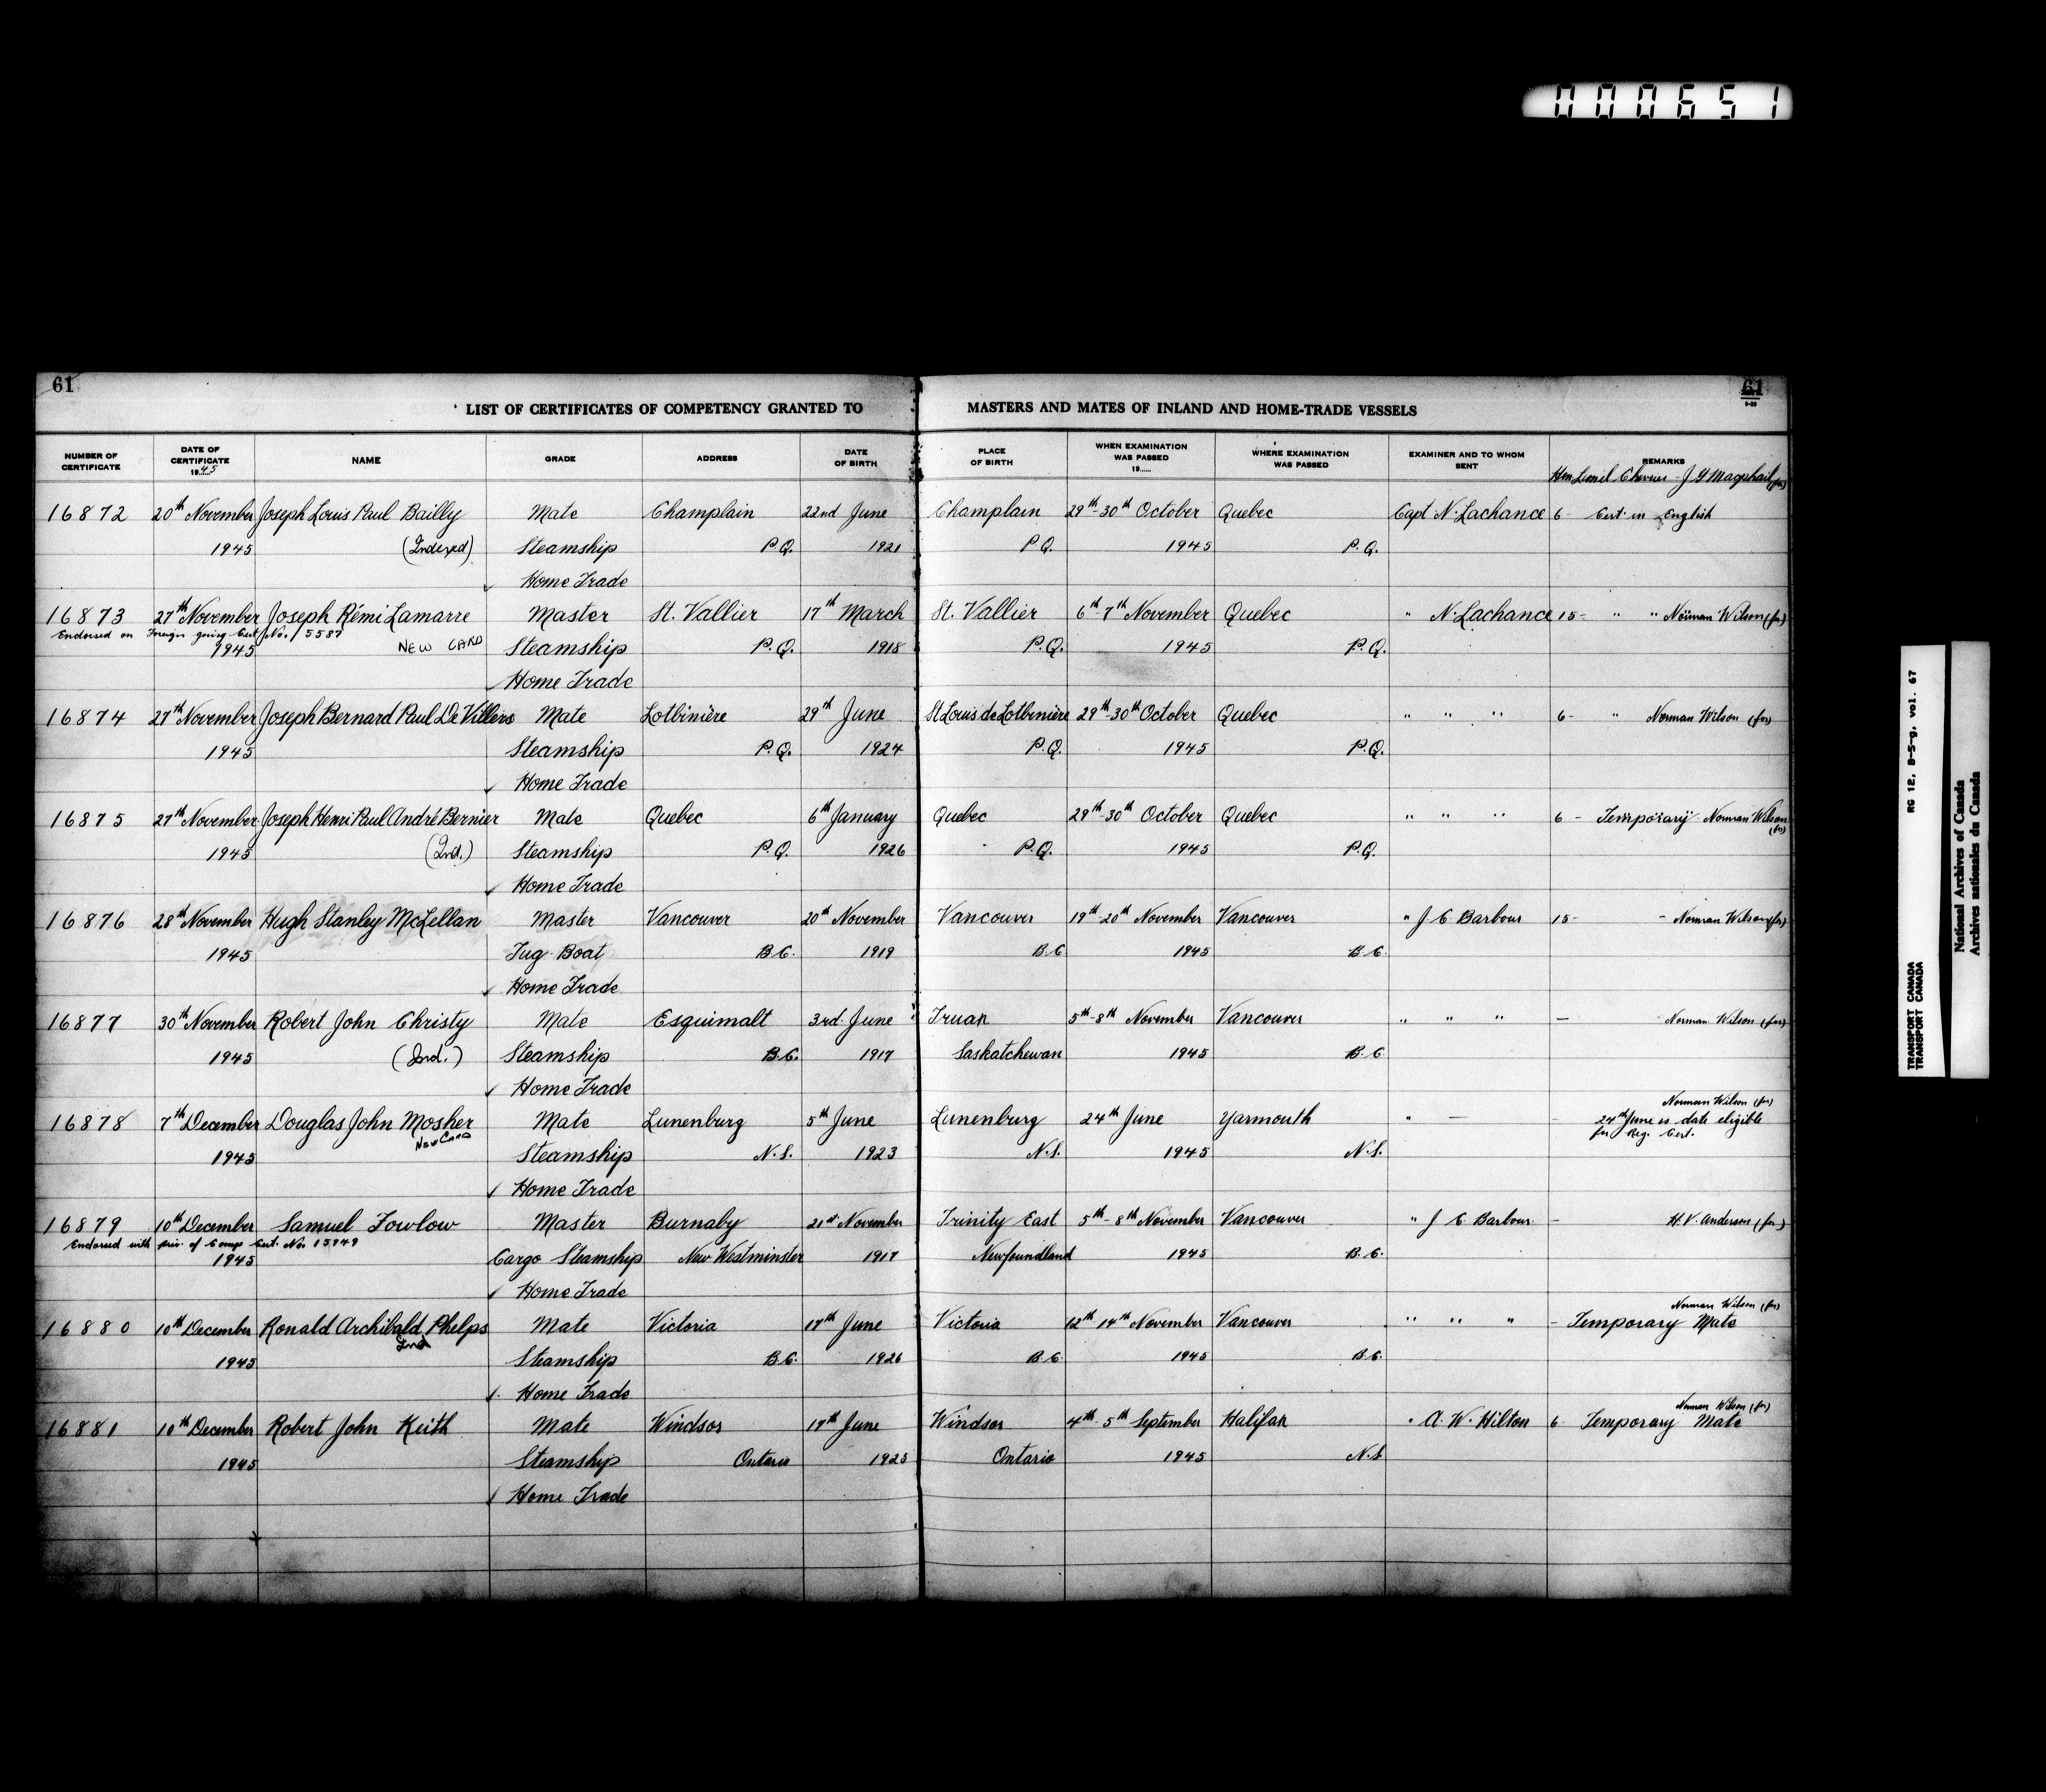 000651
61
61
LIST OF CERTIFICATES OF COMPETENCY GRANTED TO MASTERS AND MATES OF INLAND AND HOME-TRADE VESSELS
NUMBER OF CERTIFICATE DATE OF CERTIFICATE 1945 NAME GRADE ADDRESS DATE OF BIRTH PLACE OF BIRTH WHEN EXAMINATION WAS PASSED 19...... WHERE EXAMINATION WAS PASSED EXAMINER AND TO WHOM SENT REMARKS
Hon Lionel Chevrier - J G Macphail (for)
16872 20th November Joseph Louis Paul Bailly Mate Champlain 22nd June Champlain 29th-30th October Quebec Capt N. Lachance 6- Cert. in English
1945 (Indexed) Steamship P.Q. 1921 P.Q. 1945 P.Q.
Home Trade
16873 27th November Joseph Rémi Lamarre Master St. Vallier 17th March St. Vallier 6th-7th November Quebec " N. Lachance 15- " " Norman Wilson (for)
Endorsed on Foreign going Cert No. 15587
1945 NEW CARD Steamship P.Q. 1918 P.Q. 1945 P.Q.
Home Trade
16874 27th November Joseph Bernard Paul De Villers Mate Lotbinière 29th June St Louis de Lotbinière 29th-30th October Quebec " " " 6- " Norman Wilson (for)
1945 Steamship P.Q. 1924 P.Q. 1945 P.Q.
Home Trade
16875 27th November Joseph Henri Paul André Bernier Mate Quebec 6th January Quebec 29th-30th October Quebec " " " 6 - Temporary Norman Wilson (for)
1945 (Ind.) Steamship P.Q. 1926 P.Q. 1945 P.Q.
Home Trade
16876 28th November Hugh Stanley McLellan Master Vancouver 20th November Vancouver 19th-20th November Vancouver " J C Barbour 15- - Norman Wilson (for)
1945 Tug Boat B.C. 1919 B.C 1945 B.C.
Home Trade
16877 30th November Robert John Christy Mate Esquimalt 3rd June Truax 5th-8th November Vancouver " " " - Norman Wilson (for)
1945 (Ind.) Steamship B.C. 1917 Saskatchewan 1945 B.C
Home Trade
Norman Wilson (for)
16878 7th December Douglas John Mosher Mate Lunenburg 5th June Lunenburg 24th June Yarmouth " - - 24th June is date eligible
for Reg. Cert.
New Card
1945 Steamship N.S. 1923 N.S. 1945 N.S.
Home Trade
16879 10th December Samuel Fowlow Master Burnaby 21st November Trinity East 5th-8th November Vancouver " J C Barbour - H. V. Anderson (for)
Endorsed with priv. of Comp Cert. No. 15949
1945 Cargo Steamship New Westminster 1917 Newfoundland 1945 B.C.
Home Trade
Norman Wilson (for)
16880 10th December Ronald Archibald Phelps Mate Victoria 17th June Victoria 12th-14th November Vancouver " " " - Temporary Mate
Ind
1945 Steamship B.C. 1926 B.C. 1945 B.C.
Home Trade
Norman Wilson (for)
16881 10th December Robert John Keith Mate Windsor 17th June Windsor 4th-5th September Halifax " A. W. Hilton 6 Temporary Mate
1945 Steamship Ontario 1925 Ontario 1945 N.S
Home Trade
TRANSPORT CANADA RG 12, B-5-g, vol. 67
TRANSPORT CANADA
National Archives of Canada
Archives nationales du Canada